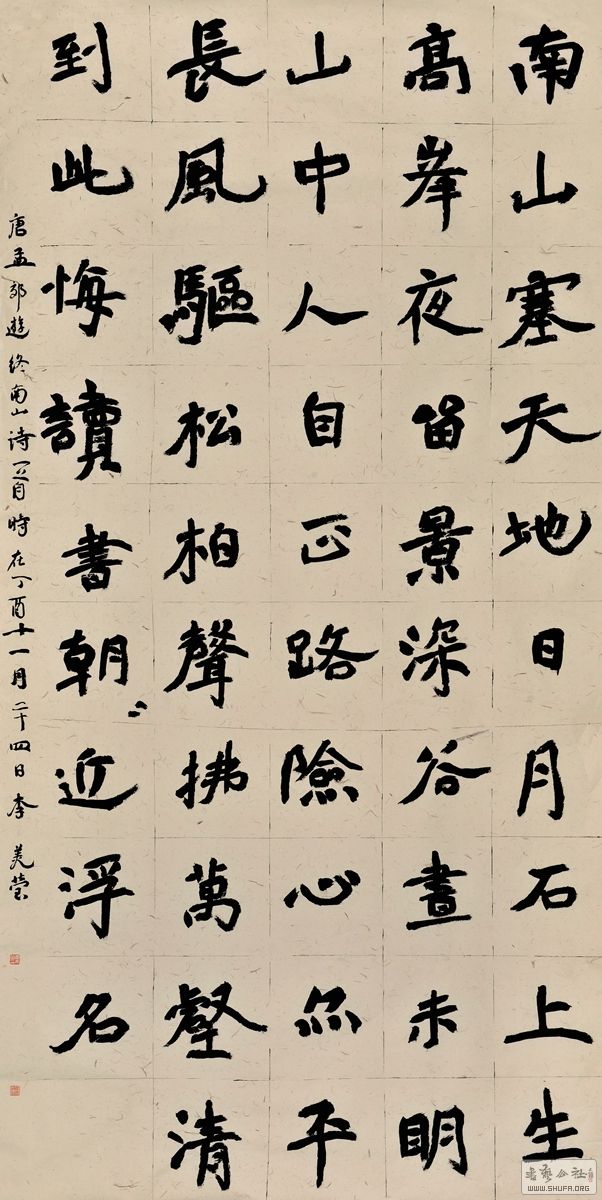 南山塞天地日月石上生
髙峯夜留景深谷晝未明
山中人自正路險心亦平
長風驅松柏聲拂萬壑清
到此悔讀書朝〻近浮名
唐孟郊遊终南山诗一首時在丁酉十一月二十四日李美莹
書藝公社
WWW.SHUFA.ORG